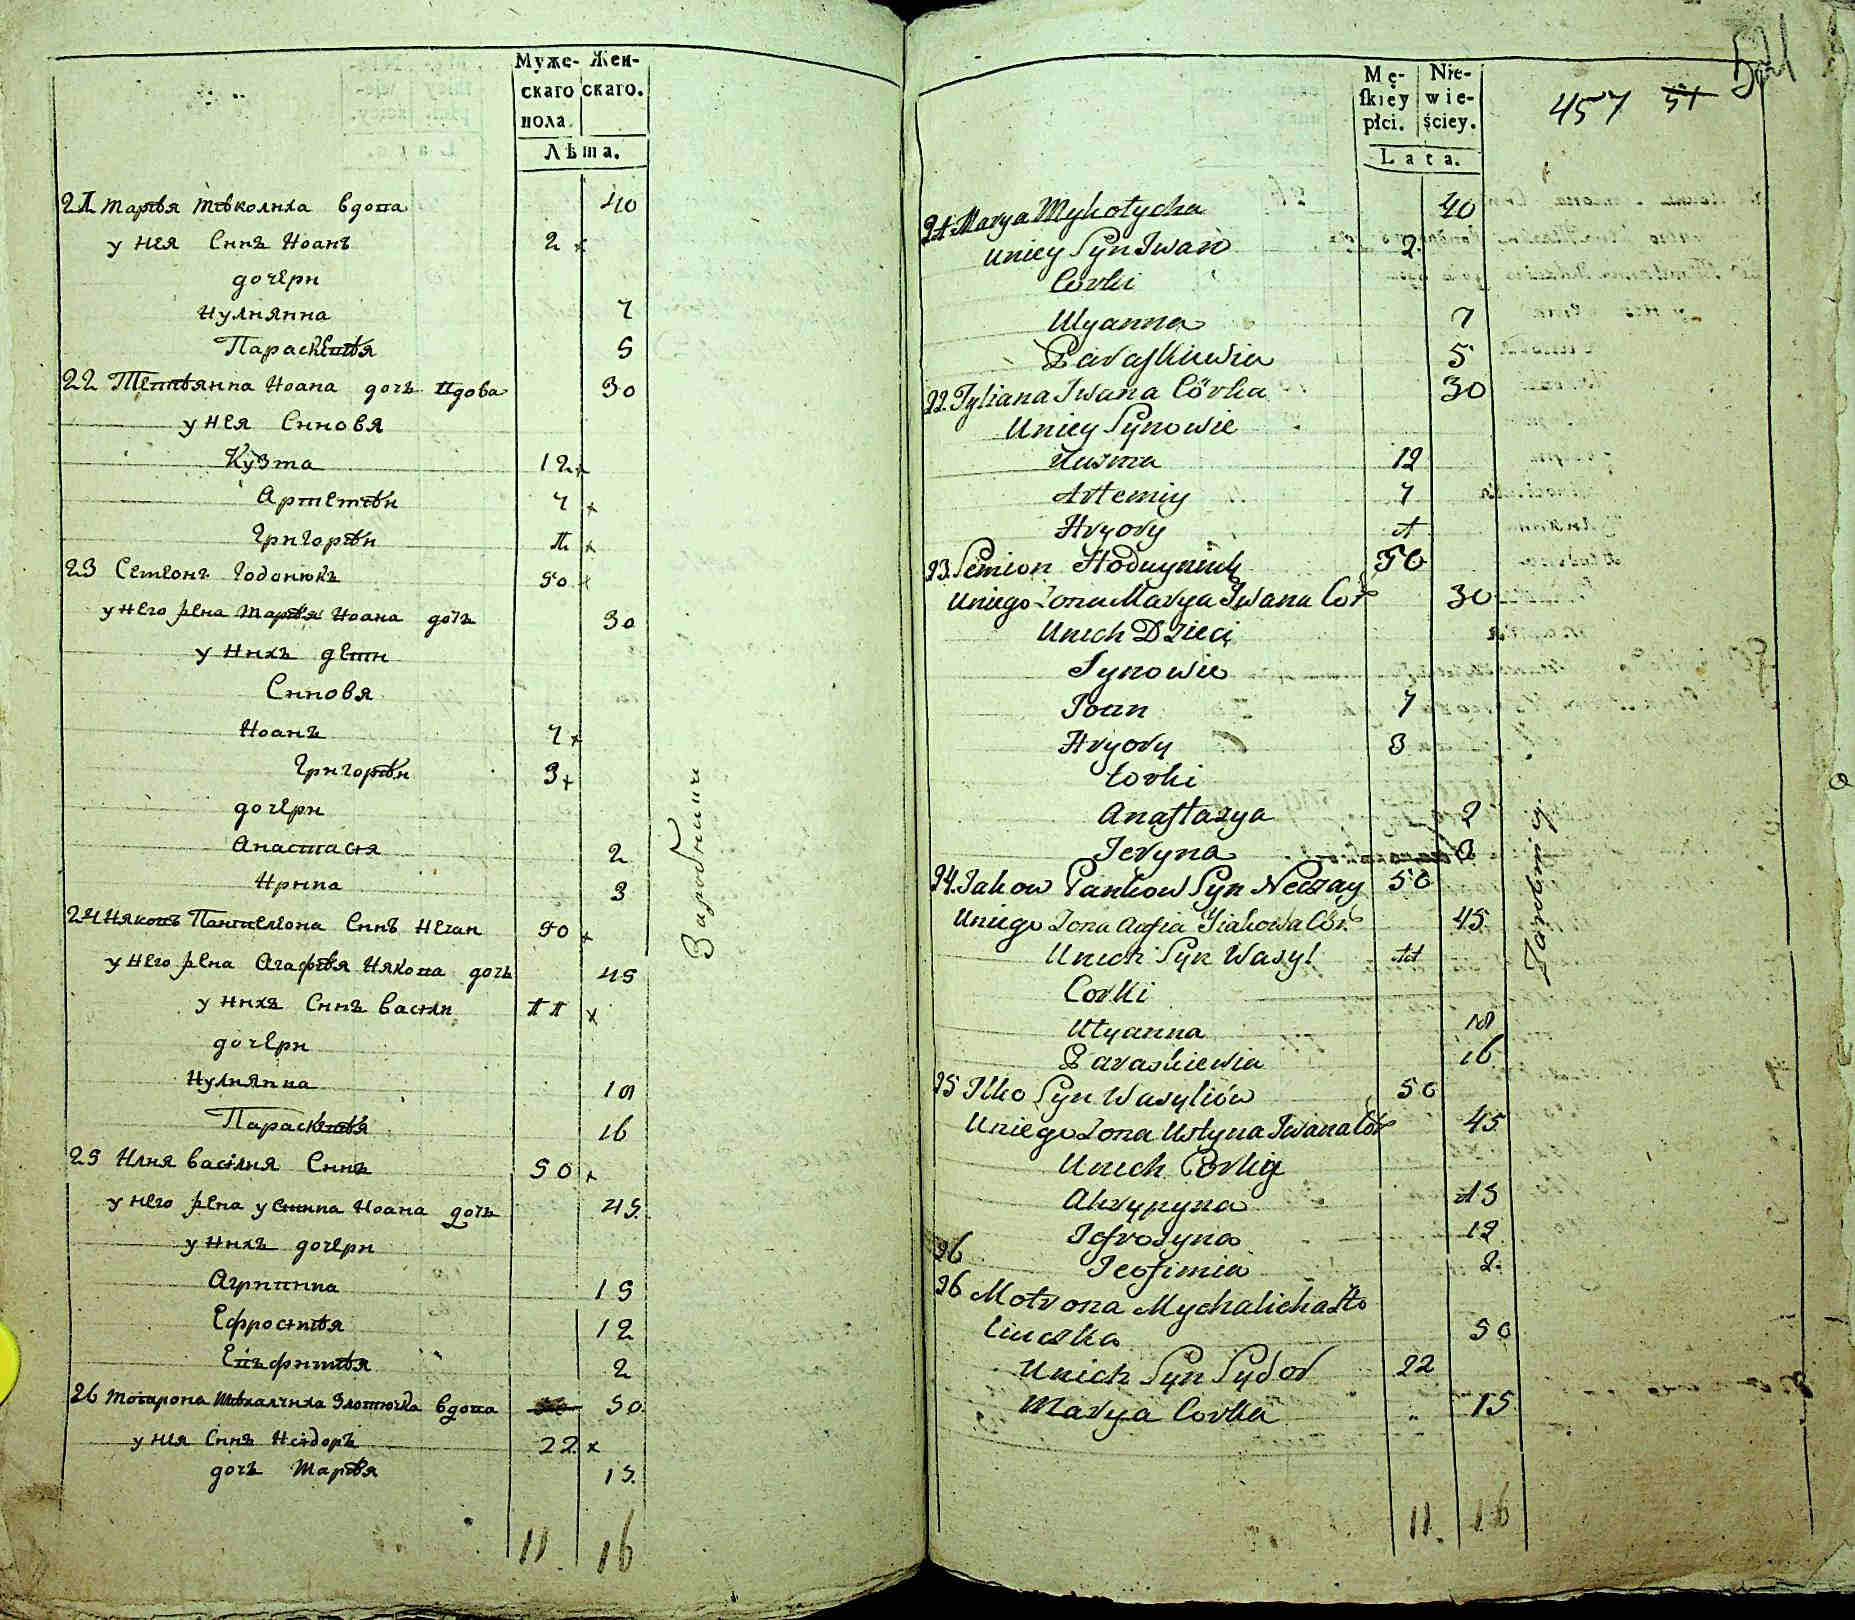 Муже- Жен-
скаго скаго.
пола.
Лѣта.
21 Марѣя Мѣколиха вдова 40
у нея Синъ Иоанъ 2 x
дочери
Иулиянна 7
Параскевѣя 5
22 Тетѣянна Иоана дочь вдова 30
у нея Синовя
Кузма 12 x
Артемѣи 7 x
Григорѣи 1 x
23 Семеонъ Годонюкъ 50 x
у него жена Марѣя Иоана дочъ 30
у нихъ дети
Синовя
Иоанъ 7 x
Григорѣи 3 x
дочери
Анастасѣя 2
Ирина 3
24 Ияковъ Пантелеона Синъ Нечаи 50 x
у него жена Агафѣя Иякова дочъ 45
у нихъ Синъ Васили 11 x
дочери
Иулиянна 18
Параскевѣя 16
25 Илия Василия Синъ 50 x
у него жена устина Иоана дочъ 45.
у нихъ дочери
Агрипина 15
Ефросинѣя 12
Евъфимѣя 2
26 Мотрона Мѣхалчиха вдова 50
у нея Синъ Исидоръ 22 x
дочъ Марѣя 15.
11 16
Заробники
Mę- Nie-
skiey wie-
płci. ściey.
Lata.
457 51
21. Marya Mykołycha 40
uniey Syn Iwan 2.
Corki
Ulyanna 7
Paraskiewia 5
22. Tyliana Iwana Córka 30
Uniey Synowie
Kusma 12
Artemiy 7
Hryory 1
23. Semion Hoduniuk 50
Uniego Zona Marya Iwana Cór 30
Unich Dzieci
Synowie
Ioan 7
Hryory 3
Corki
Anastazya 2
Ieryna 3
24. Iakow Pankow Syn Neczay 50
Uniego Zona Aafia Iiakowa Cór. 45
Unich Syn Wasyl 11
Corki
Ulyanna 18
Paraskiewia 16
25 Ilko Syn Wasyliów 50
Uniego Zona Ustyna Iwana Cór 45
Unich Corky
Ahrypyna 15
Iefrosyna 12
26
Ieofimia 2.
26 Motrona Mychalicha 50
Unich Syn Sydor 22
Marya Corka 15
11. 16
Zarobnik